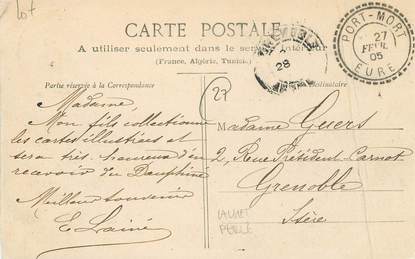 Lot
CARTE POSTALE
A utiliser seulement dans le service intérieur
(France, Algérie, Tunisie.)
Partie réservée à la Correspondance
Destinataire
PORT-MORT
27
FEVR
05
EURE
GRENOBLE
28
27
Madame
Mon fils collectionne
les cartes illustrées et
sera très heureux d'en
recevoir du Dauphiné
Meilleur souvenir
E. Lainé
Madame Guers
2, Rue Président Carnot
Grenoble
Isère